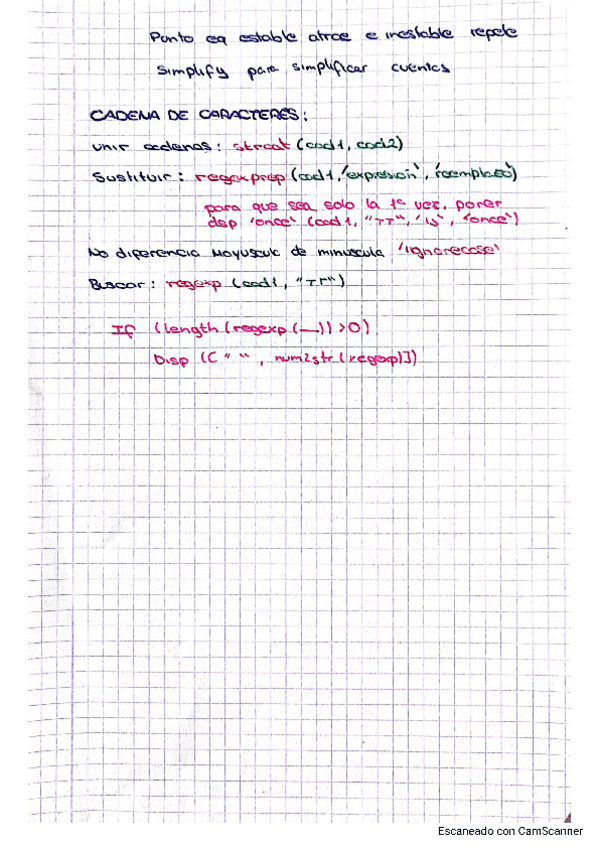 Punto eq estable atrae e inestable repele
simplify para simplificar cuentas
CADENA DE CARACTERES:
unir cadenas: strcat (cad1, cad2)
Sustituir: regexprep (cad1, 'expresion', 'reemplazo')
para que sea solo la 1ª vez, poner
dsp 'once' (cad1, "TT", 'is', 'once')
No diferencia Mayuscula de minuscula 'ignorecase'
Buscar: regexp (cad1, "TT")
If (length (regexp (—)) >0)
Disp ([" ", num2str (regexp)])
Escaneado con CamScanner